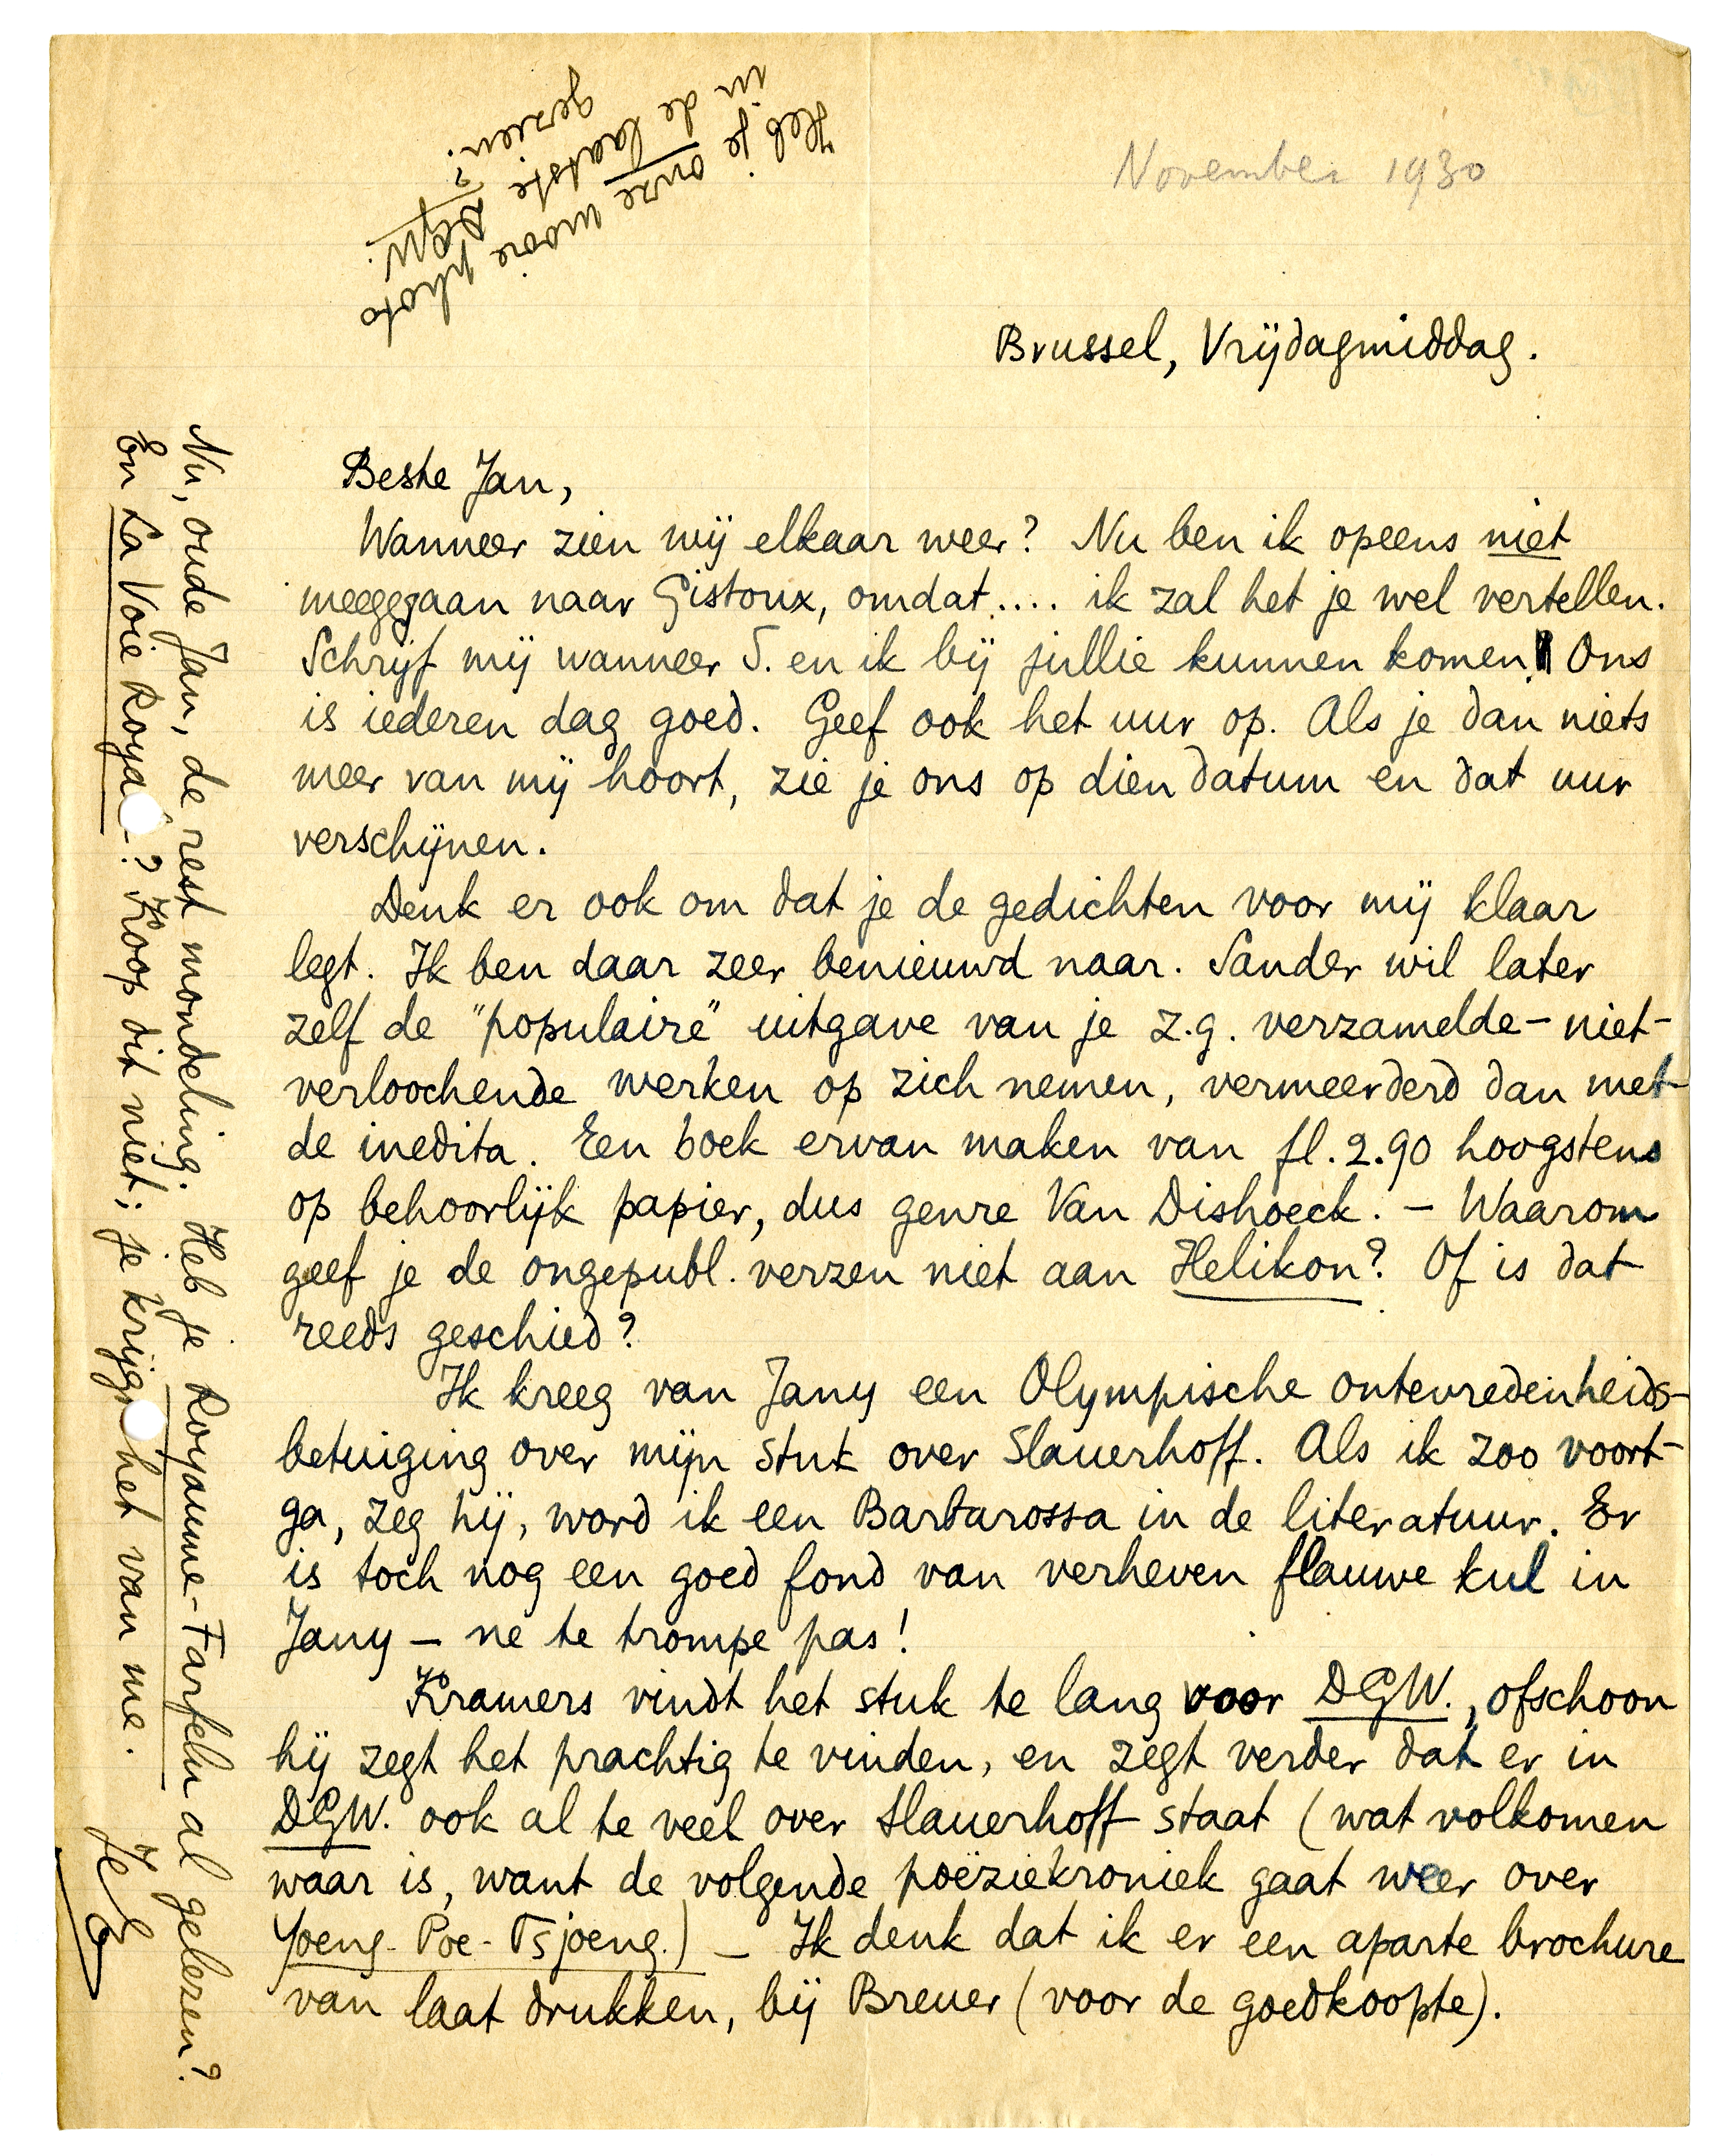 November 1930
Brussel, Vrijdagmiddag.
Beste Jan,
Wanneer zien wij elkaar weer? Nu ben ik opeens niet
meegegaan naar Gistoux, omdat.... ik zal het je wel vertellen.
Schrijf mij wanneer S. en ik bij jullie kunnen komen! Ons
is iederen dag goed. Geef ook het uur op. Als je dan niets
meer van mij hoort, zie je ons op dien datum en dat uur
verschijnen.
Denk er ook om dat je de gedichten voor mij klaar
legt. Ik ben daar zeer benieuwd naar. Sander wil later
zelf de "populaire" uitgave van je z.g. verzamelde-niet-
verloochende werken op zich nemen, vermeerderd dan met
de inedita. Een boek ervan maken van fl. 2.90 hoogstens
op behoorlijk papier, dus genre Van Dishoeck. – Waarom
geef je de ongepubl. verzen niet aan Helikon? Of is dat
reeds geschied?
Ik kreeg van Jany een Olympische ontevredenheids-
betuiging over mijn stuk over Slauerhoff. Als ik zoo voort-
ga, zeg hij, word ik een Barbarossa in de literatuur. Er
is toch nog een goed fond van verheven flauwe kul in
Jany – ne te trompe pas!
Kramers vindt het stuk te lang voor DGW., ofschoon
hij zegt het prachtig te vinden, en zegt verder dat er in
DGW. ook al te veel over Slauerhoff staat (wat volkomen
waar is, want de volgende poëziekroniek gaat weer over
Yoeng-Poe-Tsjoeng.) – Ik denk dat ik er een aparte brochure
van laat drukken, bij Breuer (voor de goedkoopte).
Nu, oude Jan, de rest mondeling. Heb je Royaume-Farfelu al gelezen?
En La Voie Roya -? Koop dit niet; je krijg het van me.
Je E
Heb je onze mooie photo
in de laatste DGW.
gezien?